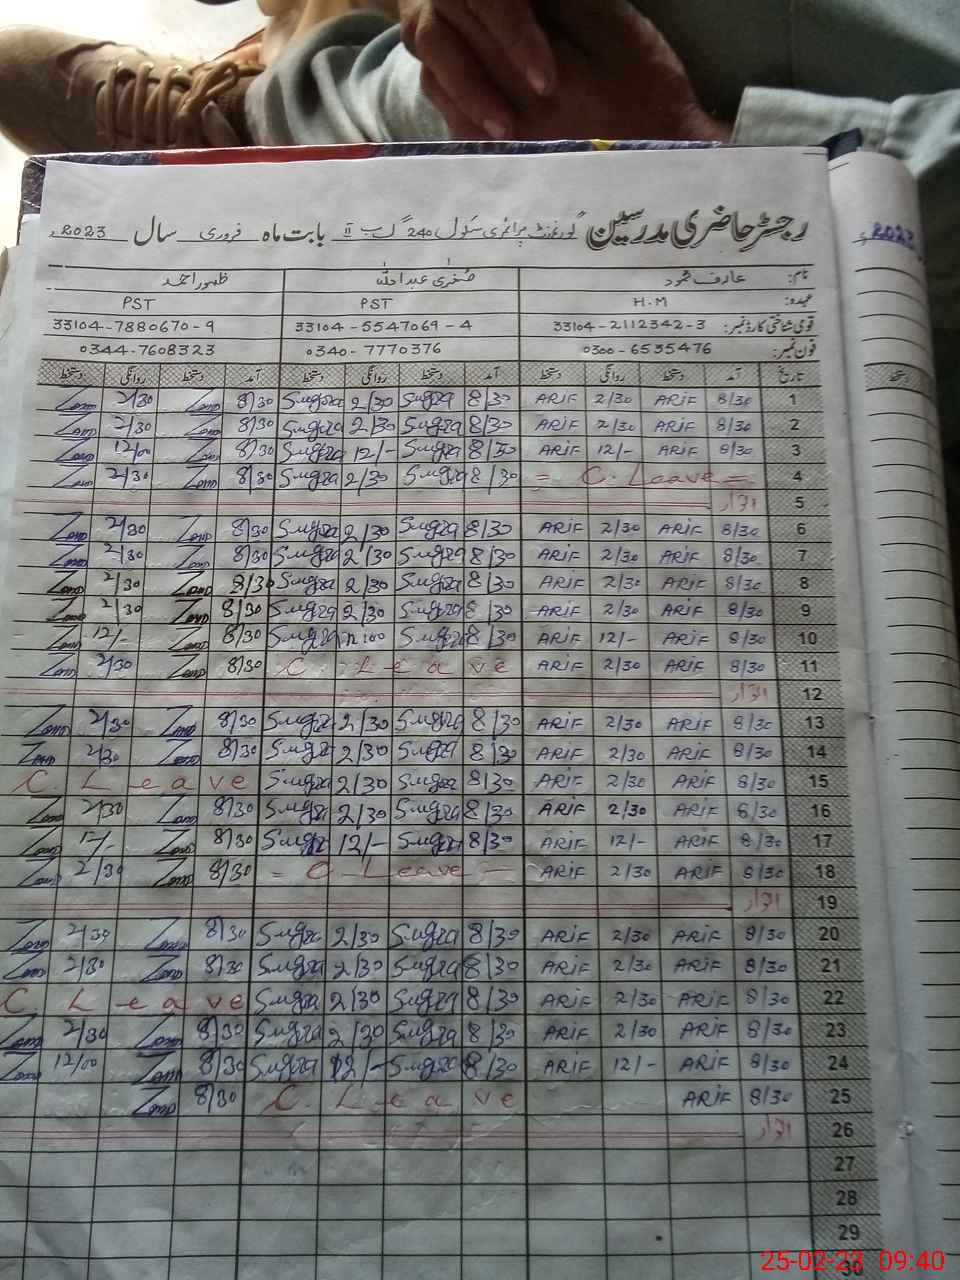 رجسٹر حاضری مدرسین گورنمنٹ پرائمری سکول 240 گ ب II بابت ماہ فروری سال 2023ء
نام: عارف محمود صغریٰ عبداللہ ظہور احمد
عہدہ: H.M PST PST
قومی شناختی کارڈ نمبر: 33104-2112342-3 33104-5547069-4 33104-7880670-9
فون نمبر: 0300-6535476 0340-7770376 0344-7608323
تاریخ آمد دستخط روانگی دستخط آمد دستخط روانگی دستخط آمد دستخط روانگی دستخط
1 8/30 ARIF 2/30 ARIF 8/30 Sugra 2/30 Sugra 8/30 2/30
2 8/30 ARIF 2/30 ARIF 8/30 Sugra 2/30 Sugra 8/30 2/30
3 8/30 ARIF 12/- ARIF 8/30 Sugra 12/- Sugra 8/30 12/00
4 = C. Leave = 8/30 Sugra 2/30 Sugra 8/30 2/30
5 اتوار
6 8/30 ARIF 2/30 ARIF 8/30 Sugra 2/30 Sugra 8/30 2/30
7 8/30 ARIF 2/30 ARIF 8/30 Sugra 2/30 Sugra 8/30 2/30
8 8/30 ARIF 2/30 ARIF 8/30 Sugra 2/30 Sugra 8/30 2/30
9 8/30 ARIF 2/30 ARIF 8/30 Sugra 2/30 Sugra 8/30 2/30
10 8/30 ARIF 12/- ARIF 8/30 Sugra Sugra 8/30 12/-
11 8/30 ARIF 2/30 ARIF C. Leave 8/30 2/30
12 اتوار
13 8/30 ARIF 2/30 ARIF 8/30 Sugra 2/30 Sugra 8/30 2/30
14 8/30 ARIF 2/30 ARIF 8/30 Sugra 2/30 Sugra 8/30 2/30
15 8/30 ARIF 2/30 ARIF 8/30 Sugra 2/30 Sugra C. Leave
16 8/30 ARIF 2/30 ARIF 8/30 Sugra 2/30 Sugra 8/30 2/30
17 8/30 ARIF 12/- ARIF 8/30 Sugra 12/- Sugra 8/30 12/-
18 8/30 ARIF 2/30 ARIF = C. Leave = 8/30 2/30
19 اتوار
20 8/30 ARIF 2/30 ARIF 8/30 Sugra 2/30 Sugra 8/30 2/30
21 8/30 ARIF 2/30 ARIF 8/30 Sugra 2/30 Sugra 8/30 2/30
22 8/30 ARIF 2/30 ARIF 8/30 Sugra 2/30 Sugra C Leave
23 8/30 ARIF 2/30 ARIF 8/30 Sugra 2/30 Sugra 8/30 2/30
24 8/30 ARIF 12/- ARIF 8/30 Sugra 12/- Sugra 8/30 12/00
25 8/30 ARIF C. Leave 8/30
26 اتوار
27
28
29
30
2023ء
دستخط
25-02-23 09:40